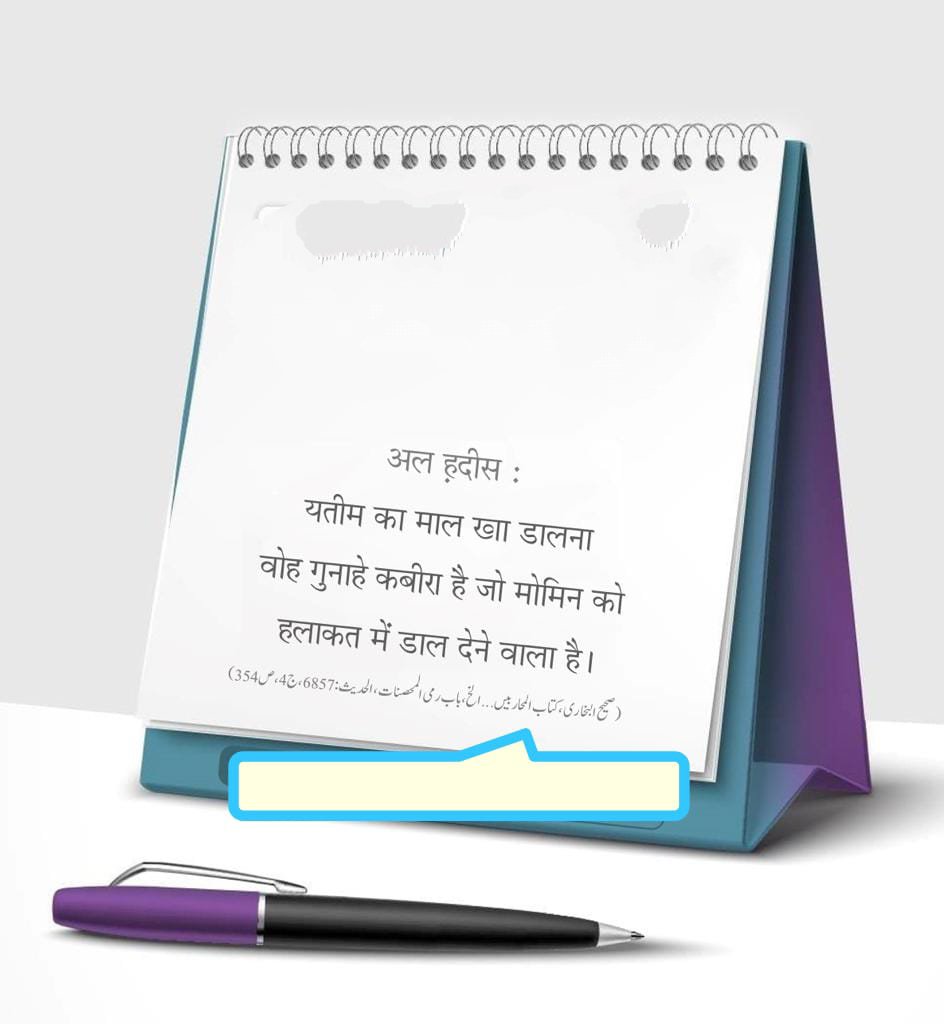 अल ह़दीस :
यतीम का माल खा डालना
वोह गुनाहे कबीरा है जो मोमिन को
हलाकत में डाल देने वाला है।
(صحیح البخاری،کتاب المحاربین...الخ،باب رمی المحصنات،الحدیث:6857،ج4،ص354)